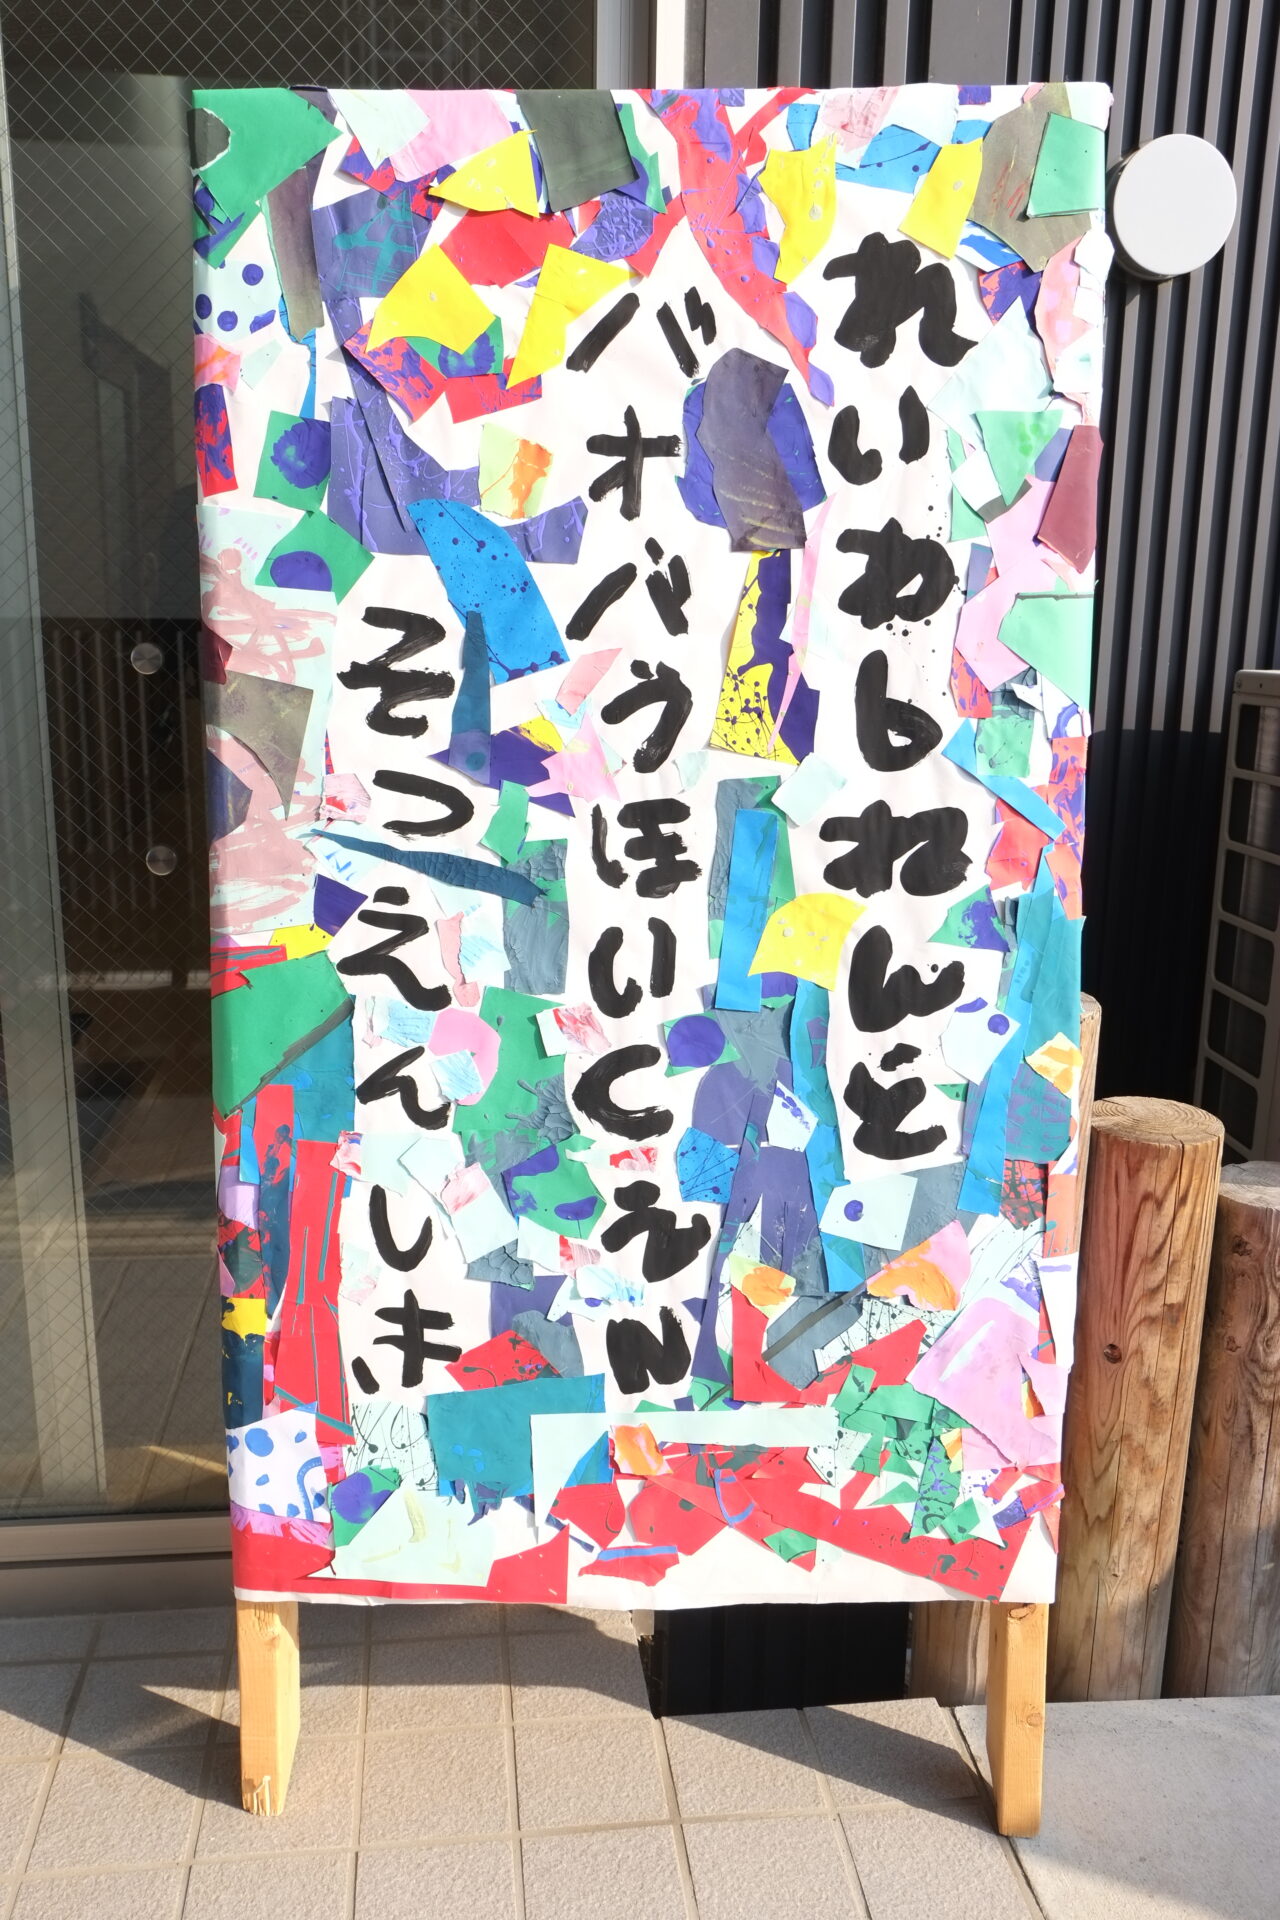 れいわ6ねんど
バオバブほいくえん
そつえんしき